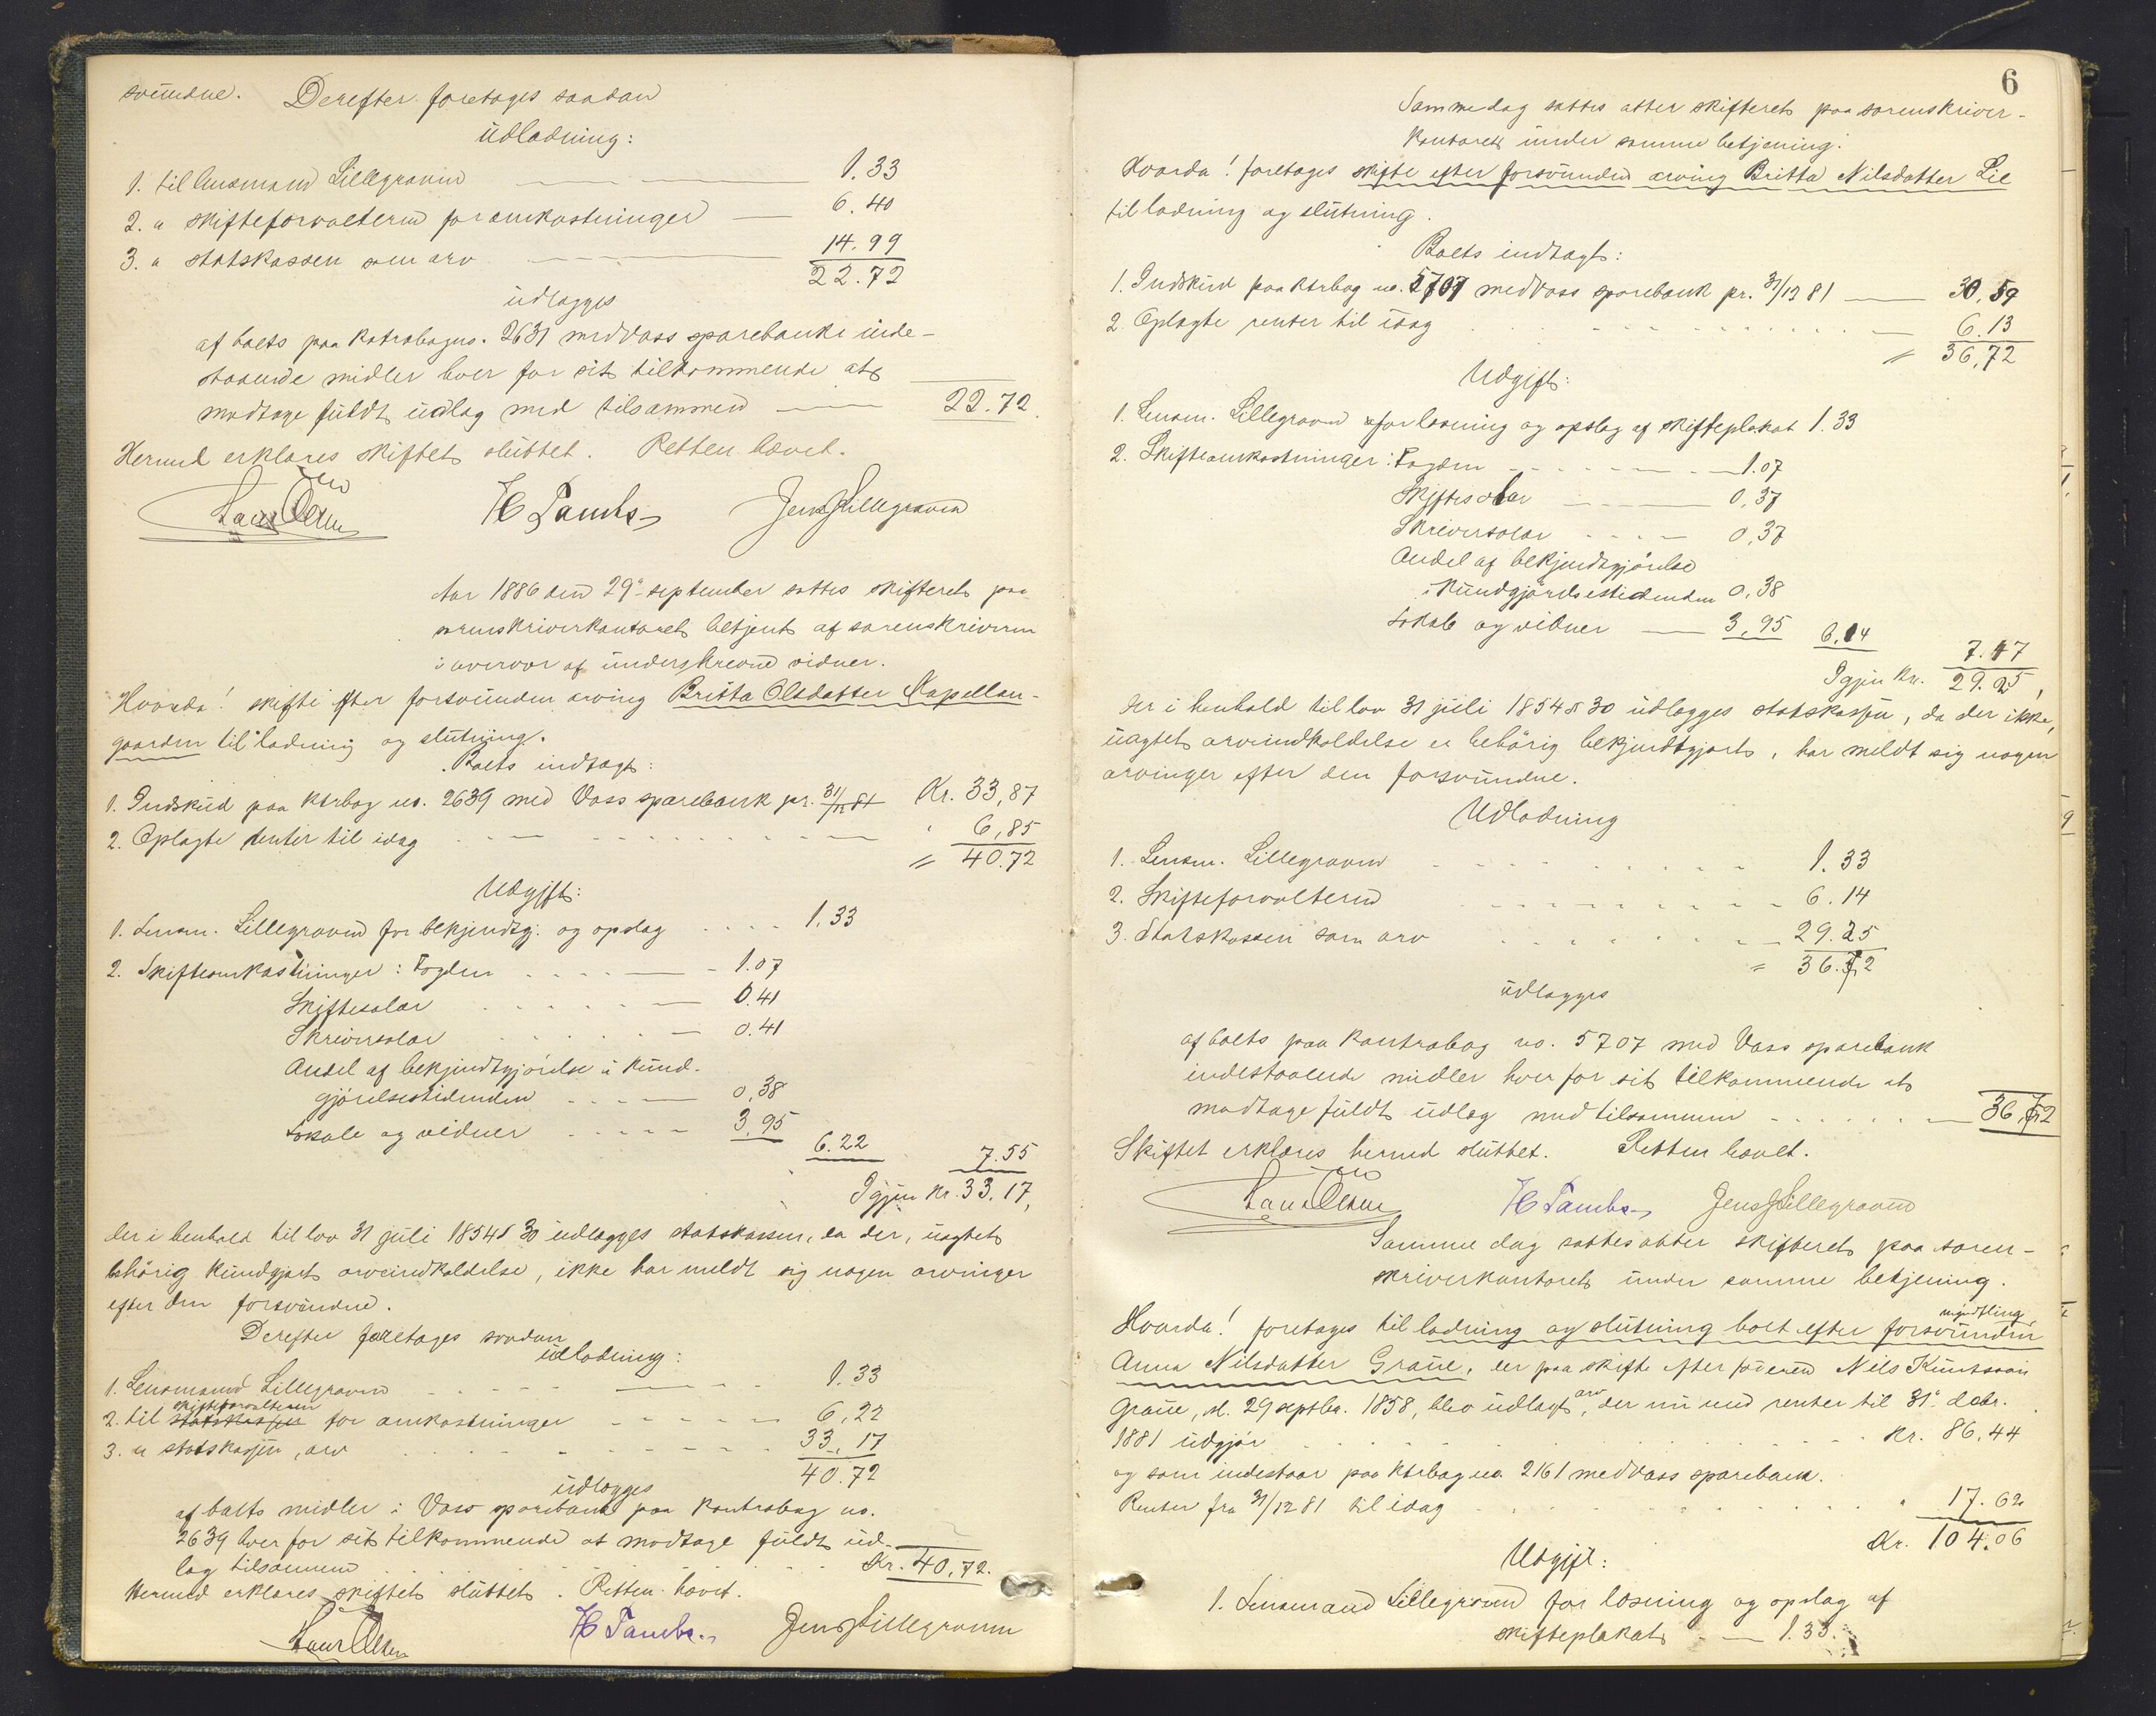 svundne. Derefter foretoges saadan
udlodning:
1. til lensmand Lillegraven 1.33
2. " skifteforvalteren for omkostninger 6.40
3. " statskassen som arv 14.99
22.72
udlægges
af boets paa kontrabog no. 2631 med Voss sparebank inde-
staaende midler hver for sit tilkommende at
modtage fuldt udlæg med tilsammen 22.72.
Hermed erklæres skiftet sluttet. Retten hævet.
H Tambs Jens J Lillegraven
Aar 1886 den 29de september sattes skifteret paa
sorenskriverkontoret betjent af sorenskriveren
i overvær af underskrevne vidner.
Hvorda! skifte efter forsvunden arving Britta Olsdatter Kapellan-
gaarden til lodning og slutning.
Boets indtægt:
1. Indskud paa ktrbog no. 2639 med Voss sparebank pr. 31/12 81 Kr. 33,87
2. Oplagte renter til idag " 6,85
= 40.72
Udgift:
1. Lensm. Lillegraven for bekjendtg. og opslag 1.33
2. Skifteomkostninger: Fogden 1.07
Skiftesalær 0.41
Skriversalær 0.41
Andel af bekjendtgjørelse i Kund-
gjørelsestidenden 0,38
Lokale og vidner 3,95 6.22 7.55
Igjen Kr. 33.17,
der i henhold til lov 31 juli 1854 § 30 udlægges statskassen, da der, uagtet
behörig kundgjort arveindkaldelse, ikke har meldt sig nogen arvinger
efter den forsvundne.
Derefter foretages saadan
udlodning:
1. Lensmand Lillegraven 1.33
skifteforvalteren
2. til statskassen for omkostninger 6,22
3. " statskassen, arv 33.17
40.72
udlægges
af boets midler i Voss sparebank paa kontrabog no.
2639 hver for sit tilkommende at modtage fuldt ud-
læg tilsammen Kr. 40,72.
Hermed erklæres skiftet sluttet. Retten hævet.
H Tambs Jens J Lillegraven
6
Samme dag sattes atter skifteret paa sorenskriver-
kontoret under samme betjening.
Hvorda! foretoges skifte efter forsvunden arving Britta Nilsdatter Lie
til lodning og slutning.
Boets indtægt:
1. Indskud paa ktrbog no. 5707 med Voss sparebank pr. 31/12 81 30,59
2. Oplagte renter til idag 6.13
= 36,72
Udgift:
1. Lensm. Lillegraven for læsning og opslag af skifteplakat 1.33
2. Skifteomkostninger: Fogden 1.07
Skiftesalær 0,37
Skriversalær 0,37
Andel af bekjendtgjörelse
i Kundgjörelsestidenden 0,38
Lokale og vidner 3,95 6.14 7.47
Igjen Kr. 29.25,
der i henhold til lov 31 juli 1854 § 30 udlægges statskassen, da der ikke,
uagtet arveindkaldelse er behörig bekjendtgjort, har meldt sig nogen
arvinger efter den forsvundne.
Udlodning
1. Lensm. Lillegraven 1.33
2. Skifteforvalteren 6.14
3. Statskassen som arv 29.25
= 36.72
udlægges
af boets paa kontrabog no. 5707 med Voss sparebank
indestaaende midler hver for sit tilkommende at
modtage fuldt udlæg med tilsammen 36,72
Skiftet erklæres hermed sluttet. Retten hævet.
H Tambs Jens J Lillegraven
Samme dag sattes atter skifteret paa soren-
skriverkontoret under samme betjening.
myndtling
Hvorda! foretages til lodning og slutning boet efter forsvunden
Anna Nilsdatter Graue, der paa skifte efter faderen Nils Knutsson
arv
Graue, sl. 29 septbr. 1858, blev udlagt, der nu med renter til 31de decbr.
1881 udgjör Kr. 86,44
og som indestaar paa ktrbog no. 2161 med Voss sparebank.
Renter fra 31/12 81 til idag " 17.62
Kr. 104.06
Udgift:
1. Lensmand Lillegraven for læsning og opslag af
skifteplakat 1.33.